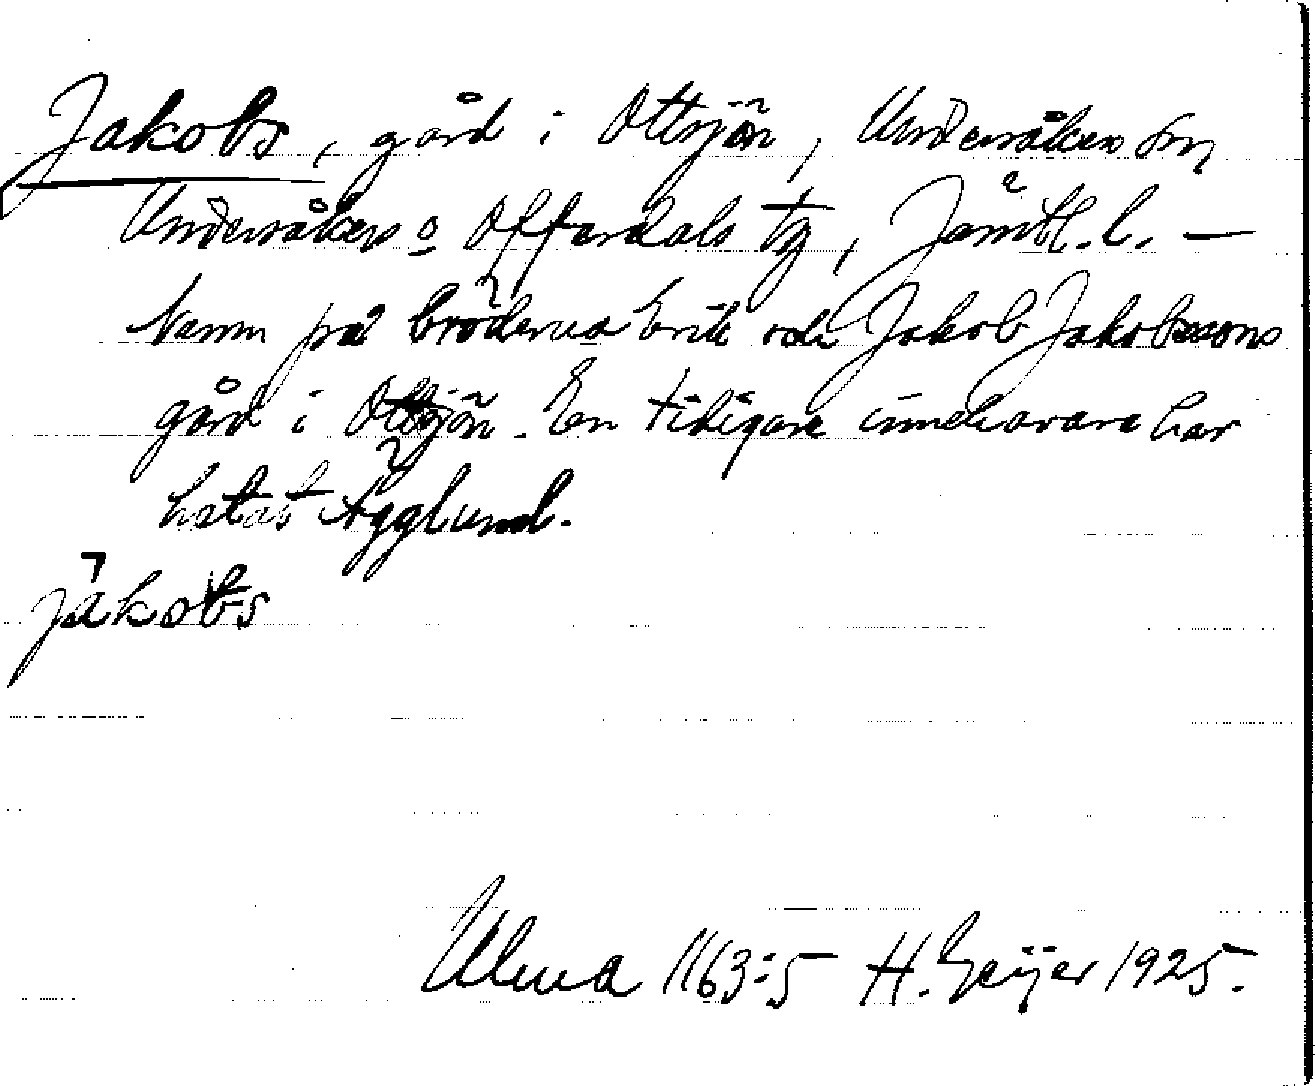 Jakobs, gård i Ottsjön, Undersåkers sn,
Undersåkers o Offerdals tg, Jämtl. l. —
Namn på bröderna Erik och Jakob Jakobssons
gård i Ottsjön. En tidigare innehavare har
hetat Ägglund.
jakobs
Ulma 1163:5 H. Geijer 1925.